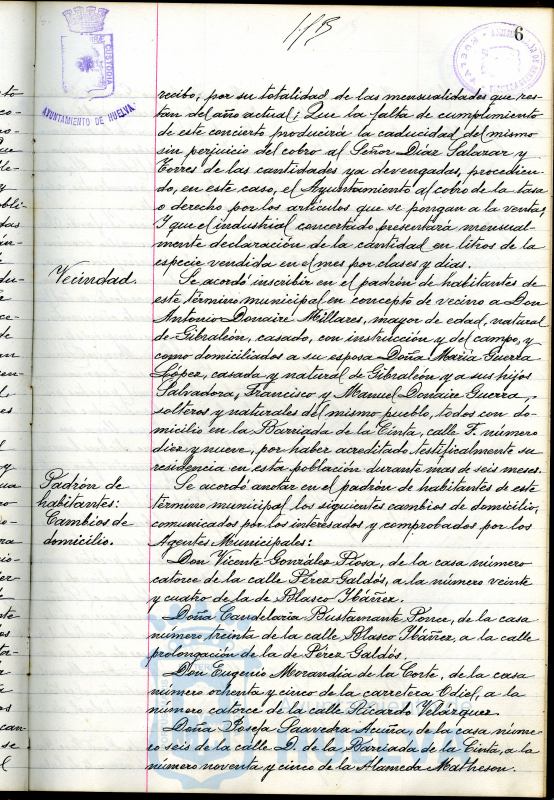 6
AYUNTAMIENTO DE HUELVA
recibo, por su totalidad de las mensualidades que res-
tan del año actual; Que la falta de cumplimiento
de este concierto producirá la caducidad del mismo
sin perjuicio del cobro al Señor Díaz Salazar y
Torres de las cantidades ya devengadas, procedien-
do, en este caso, el Ayuntamiento al cobro de la tasa
o derecho por los artículos que se pongan a la venta;
Y que el industrial concertado presentará mensual-
mente declaración de la cantidad en litros de la
especie vendida en el mes por clases y dias.
Vecindad.
Se acordó inscribir en el padrón de habitantes de
este término municipal en concepto de vecino a Don
Antonio Donaire Millares, mayor de edad, natural
de Gibraleón, casado, con instrucción y del campo, y
como domiciliados a su esposa Doña María Guerra
López, casada y natural de Gibraleón y a sus hijos
Salvadora, Francisco y Manuel Donaire Guerra,
solteros y naturales del mismo pueblo, todos con do-
micilio en la Barriada de la Cinta, calle F. número
diez y nueve, por haber acreditado testificalmente su
residencia en esta población durante mas de seis meses.
Padrón de
habitantes:
Cambios de
domicilio.
Se acordó anotar en el padrón de habitantes de este
término municipal los siguientes cambios de domicilio,
comunicados por los interesados y comprobados por los
Agentes Municipales:
Don Vicente González Piosa, de la casa número
catorce de la calle Pérez Galdós, a la número veinte
y cuatro de la de Blasco Ybáñez.
Doña Candelaria Bustamante Ponce, de la casa
número treinta de la calle Blasco Ybáñez, a la calle
prolongación de la de Pérez Galdós.
Don Eugenio Morandia de la Corte, de la casa
número ochenta y cinco de la carretera Odiel, a la
número catorce de la calle Ricardo Velázquez.
Doña Josefa Saavedra Acuña, de la casa núme-
ro seis de la calle D. de la Barriada de la Cinta, a la
número noventa y cinco de la Alameda Matheson.